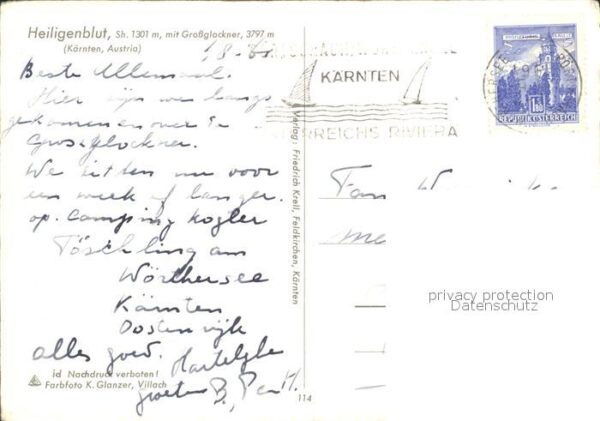 Heiligenblut, Sh. 1301 m, mit Großglockner, 3797 m
(Kärnten, Austria)
Beste Allemaal.
Hier zijn we langs
gekomen en over de
Grossglockner.
We zitten nu voor
een week of langer
op. Camping Kogler
Töschling am
Wörthersee
Kärnten
Oostenrijk
alles goed. Hartelijke
groeten B, P en H.
id Nachdruck verboten!
Farbfoto K. Glanzer, Villach
114
Verlag: Friedrich Kreil, Feldkirchen, Kärnten
KÄRNTEN
ÖSTERREICHS RIVIERA
1.80
REPUBLIK ÖSTERREICH
Fam
privacy protection
Datenschutz